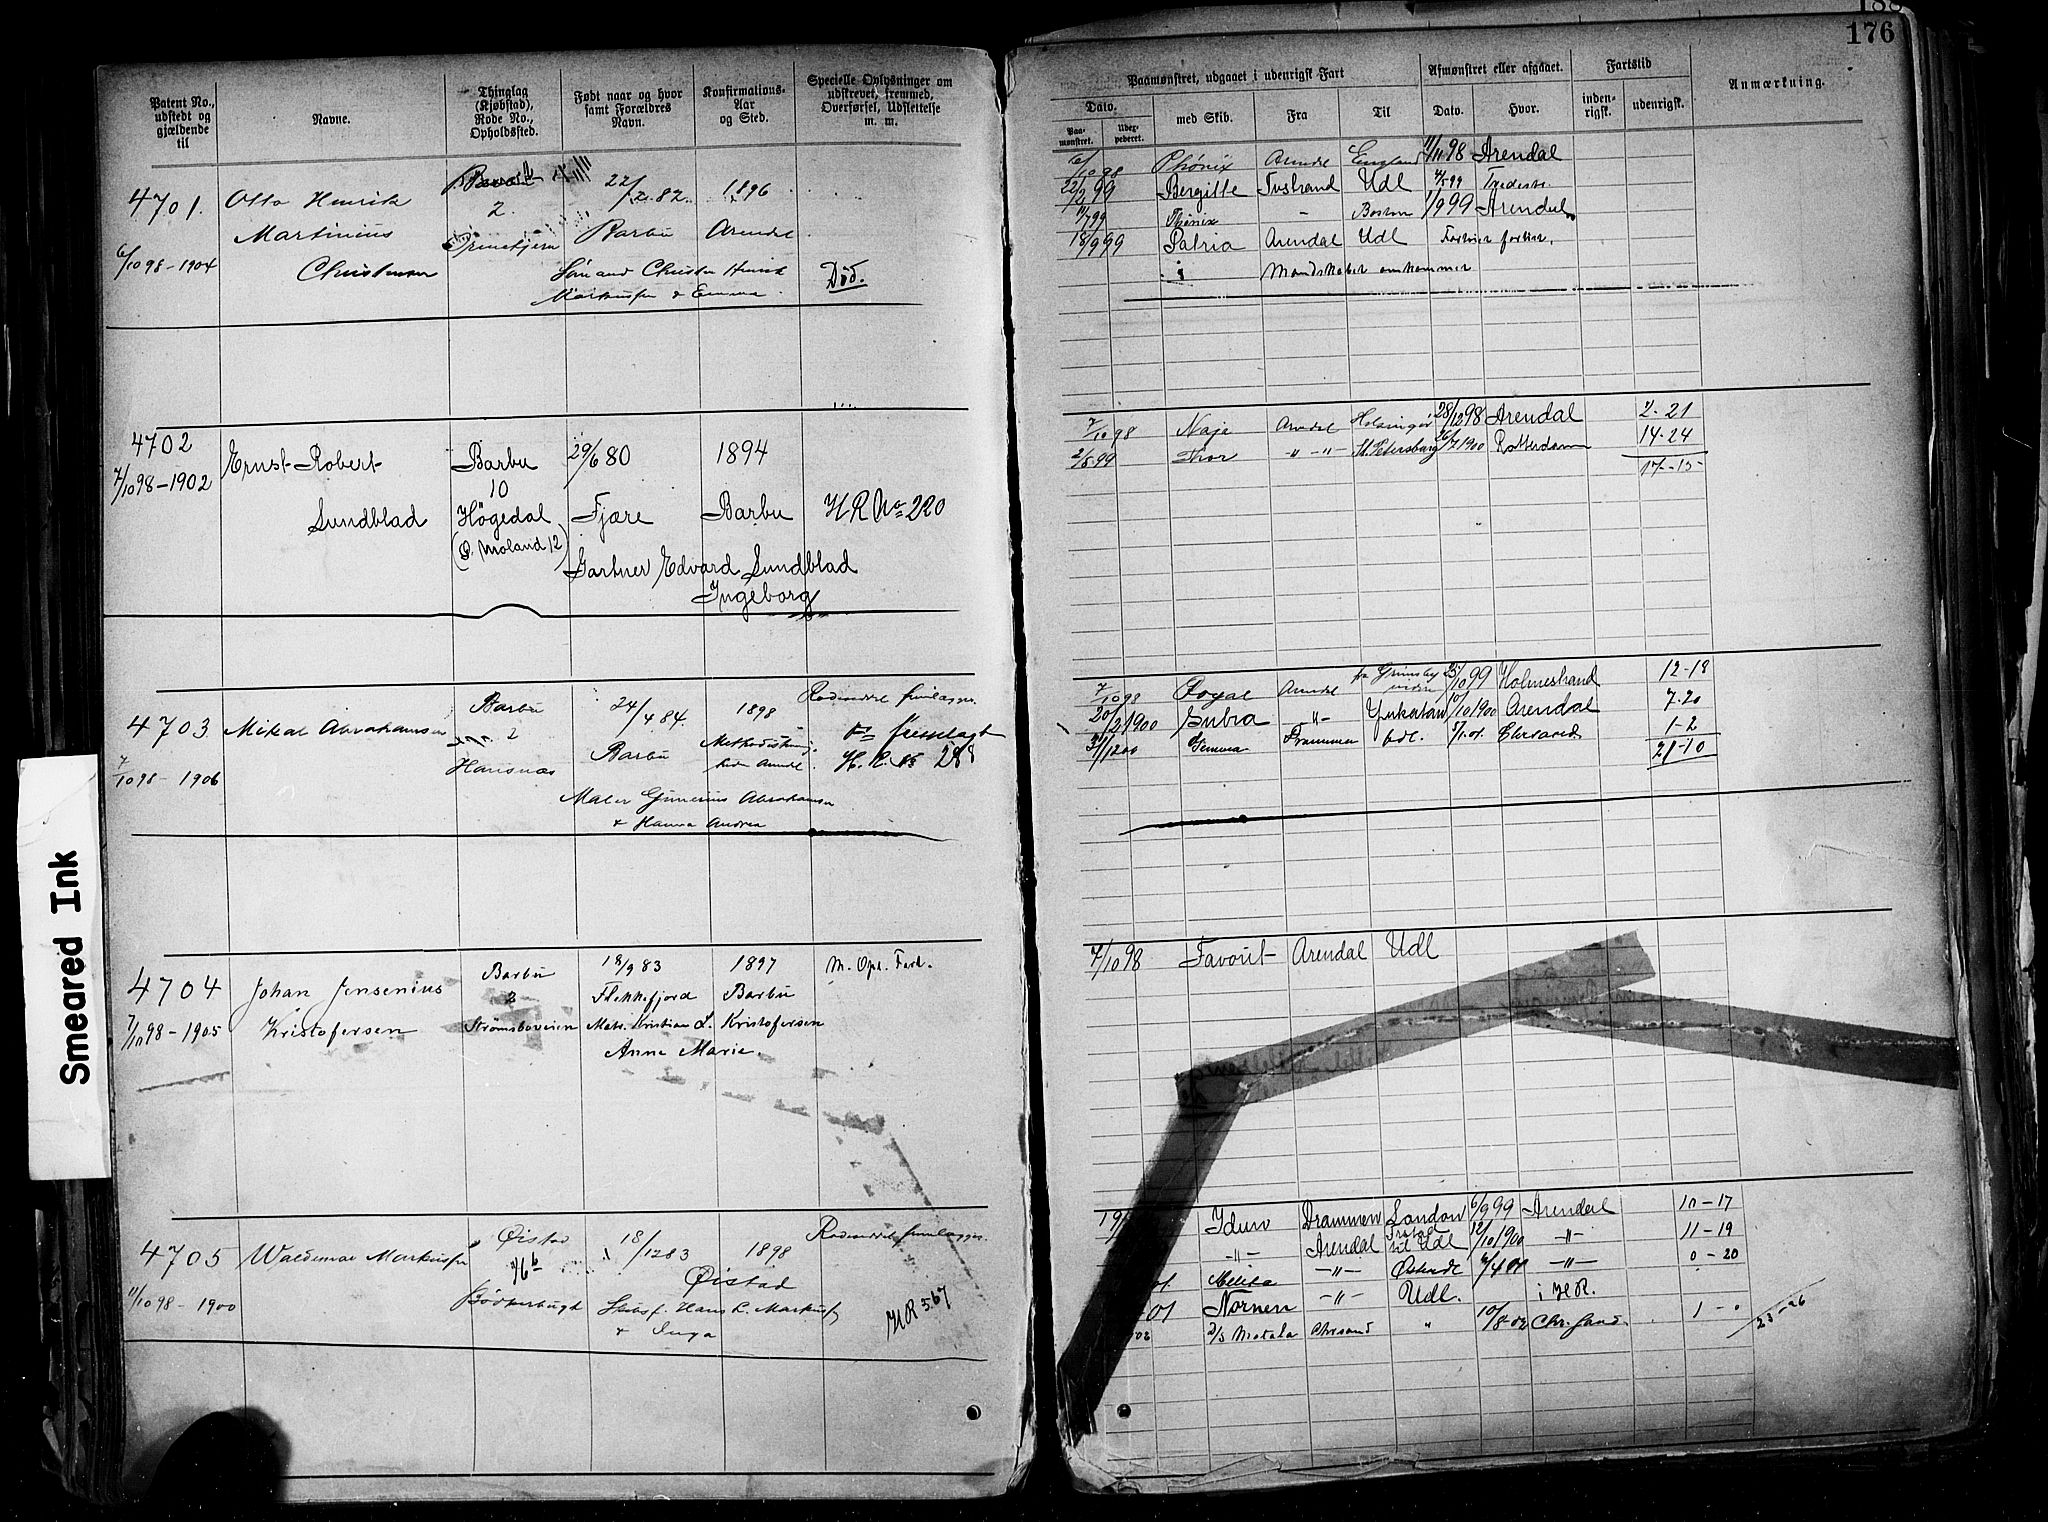 188
176
Patent No., udstedt og gjældende til
Navne.
Thinglag (Kjøbstad), Rode No., Opholdssted.
Født naar og hvor samt Forældres Navn.
Konfirmations-Aar og Sted.
Specielle Oplysninger om udskrevet, fremmed, Overførsel, Udslettelse m. m.
Paamønstret, udgaaet i udenrigsk Fart
Afmønstret eller afgaaet.
Fartstid
Anmærkning.
Dato.
Paamønstret.
Udexpederet.
med Skib.
Fra
Til
Dato.
Hvor.
indenrigsk.
udenrigsk.
4701.
6/10 98 - 1904
Otto Henrik
Martinius
Christensen
2.
22/2. 82.
Barbu
1896
Arendal
Christen Henrik
Markussen & Emma
Død.
6/10 98 Phønix Arendal England 11/11 98 Arendal
22/2 99 Bergitte Tvestrand Udl 4/5 99
11/7 99 Phønix - Boston 1/9 99 Arendal
18/9 99 Patria Arendal Udl
Mandskabet omkommet
4702
7/10 98 - 1902
Ernst Robert
Sundblad
Barbu
10
Høgedal
(Ø. Moland 12)
29/6 80
Fjære
1894
Barbu
HR No 220
Gartner Edvard Sundblad
Ingeborg
7/10 98 Naja Arendal Helsingør 28/12 98 Arendal 2-21
2/5 99 Thor -"- -"- St. Petersburg 26/7 1900 Rotterdam 14-24
17-15
4703
7/10 98 - 1906
Mikal Abrahamsen
Barbu
2
Hansnæs
24/4 84.
Barbu
1898
Maler Gunerius Abrahamsen
& Hanna Andrea
fremlagt
288
7/10 98 Arendal Grimsby 23/10 99 Holmestrand 12-18
20/2 1900 -"- Yukatan 10/10 1900 Arendal 7-20
3/11 200 Gemma Drammen Udl. 5/1. 01. 1-2
21-10
4704
7/10 98 - 1905
Johan Jensenius
Kristofersen
Barbu
2
Strømsboveien
18/9 83
Flekkefjord
1897
Barbu
Matr. Kristian L. Kristofersen
Anne Marie.
M. Opl. Fart.
7/10 98 Favorit Arendal Udl
4705
11/10 98 - 1900
Waldemar Markussen
Øistad
16b
Bødkerbugt
18/12 83
1898
Øistad
Skibsf. Hans C. Markussen
& Inga
HR 367
19/ Idun Drammen London 6/9 99 Arendal 10-17
-"- Arendal til Udl 12/10 1900 -"- 11-19
01. Melita -"- Ostende 2/4 01 -"- 0-20
01 Nornen -"- Udl. i HR.
02 D/S Motala Chrsand " 10/8-02 Chr.sand 1-0
23-26
Smeared Ink